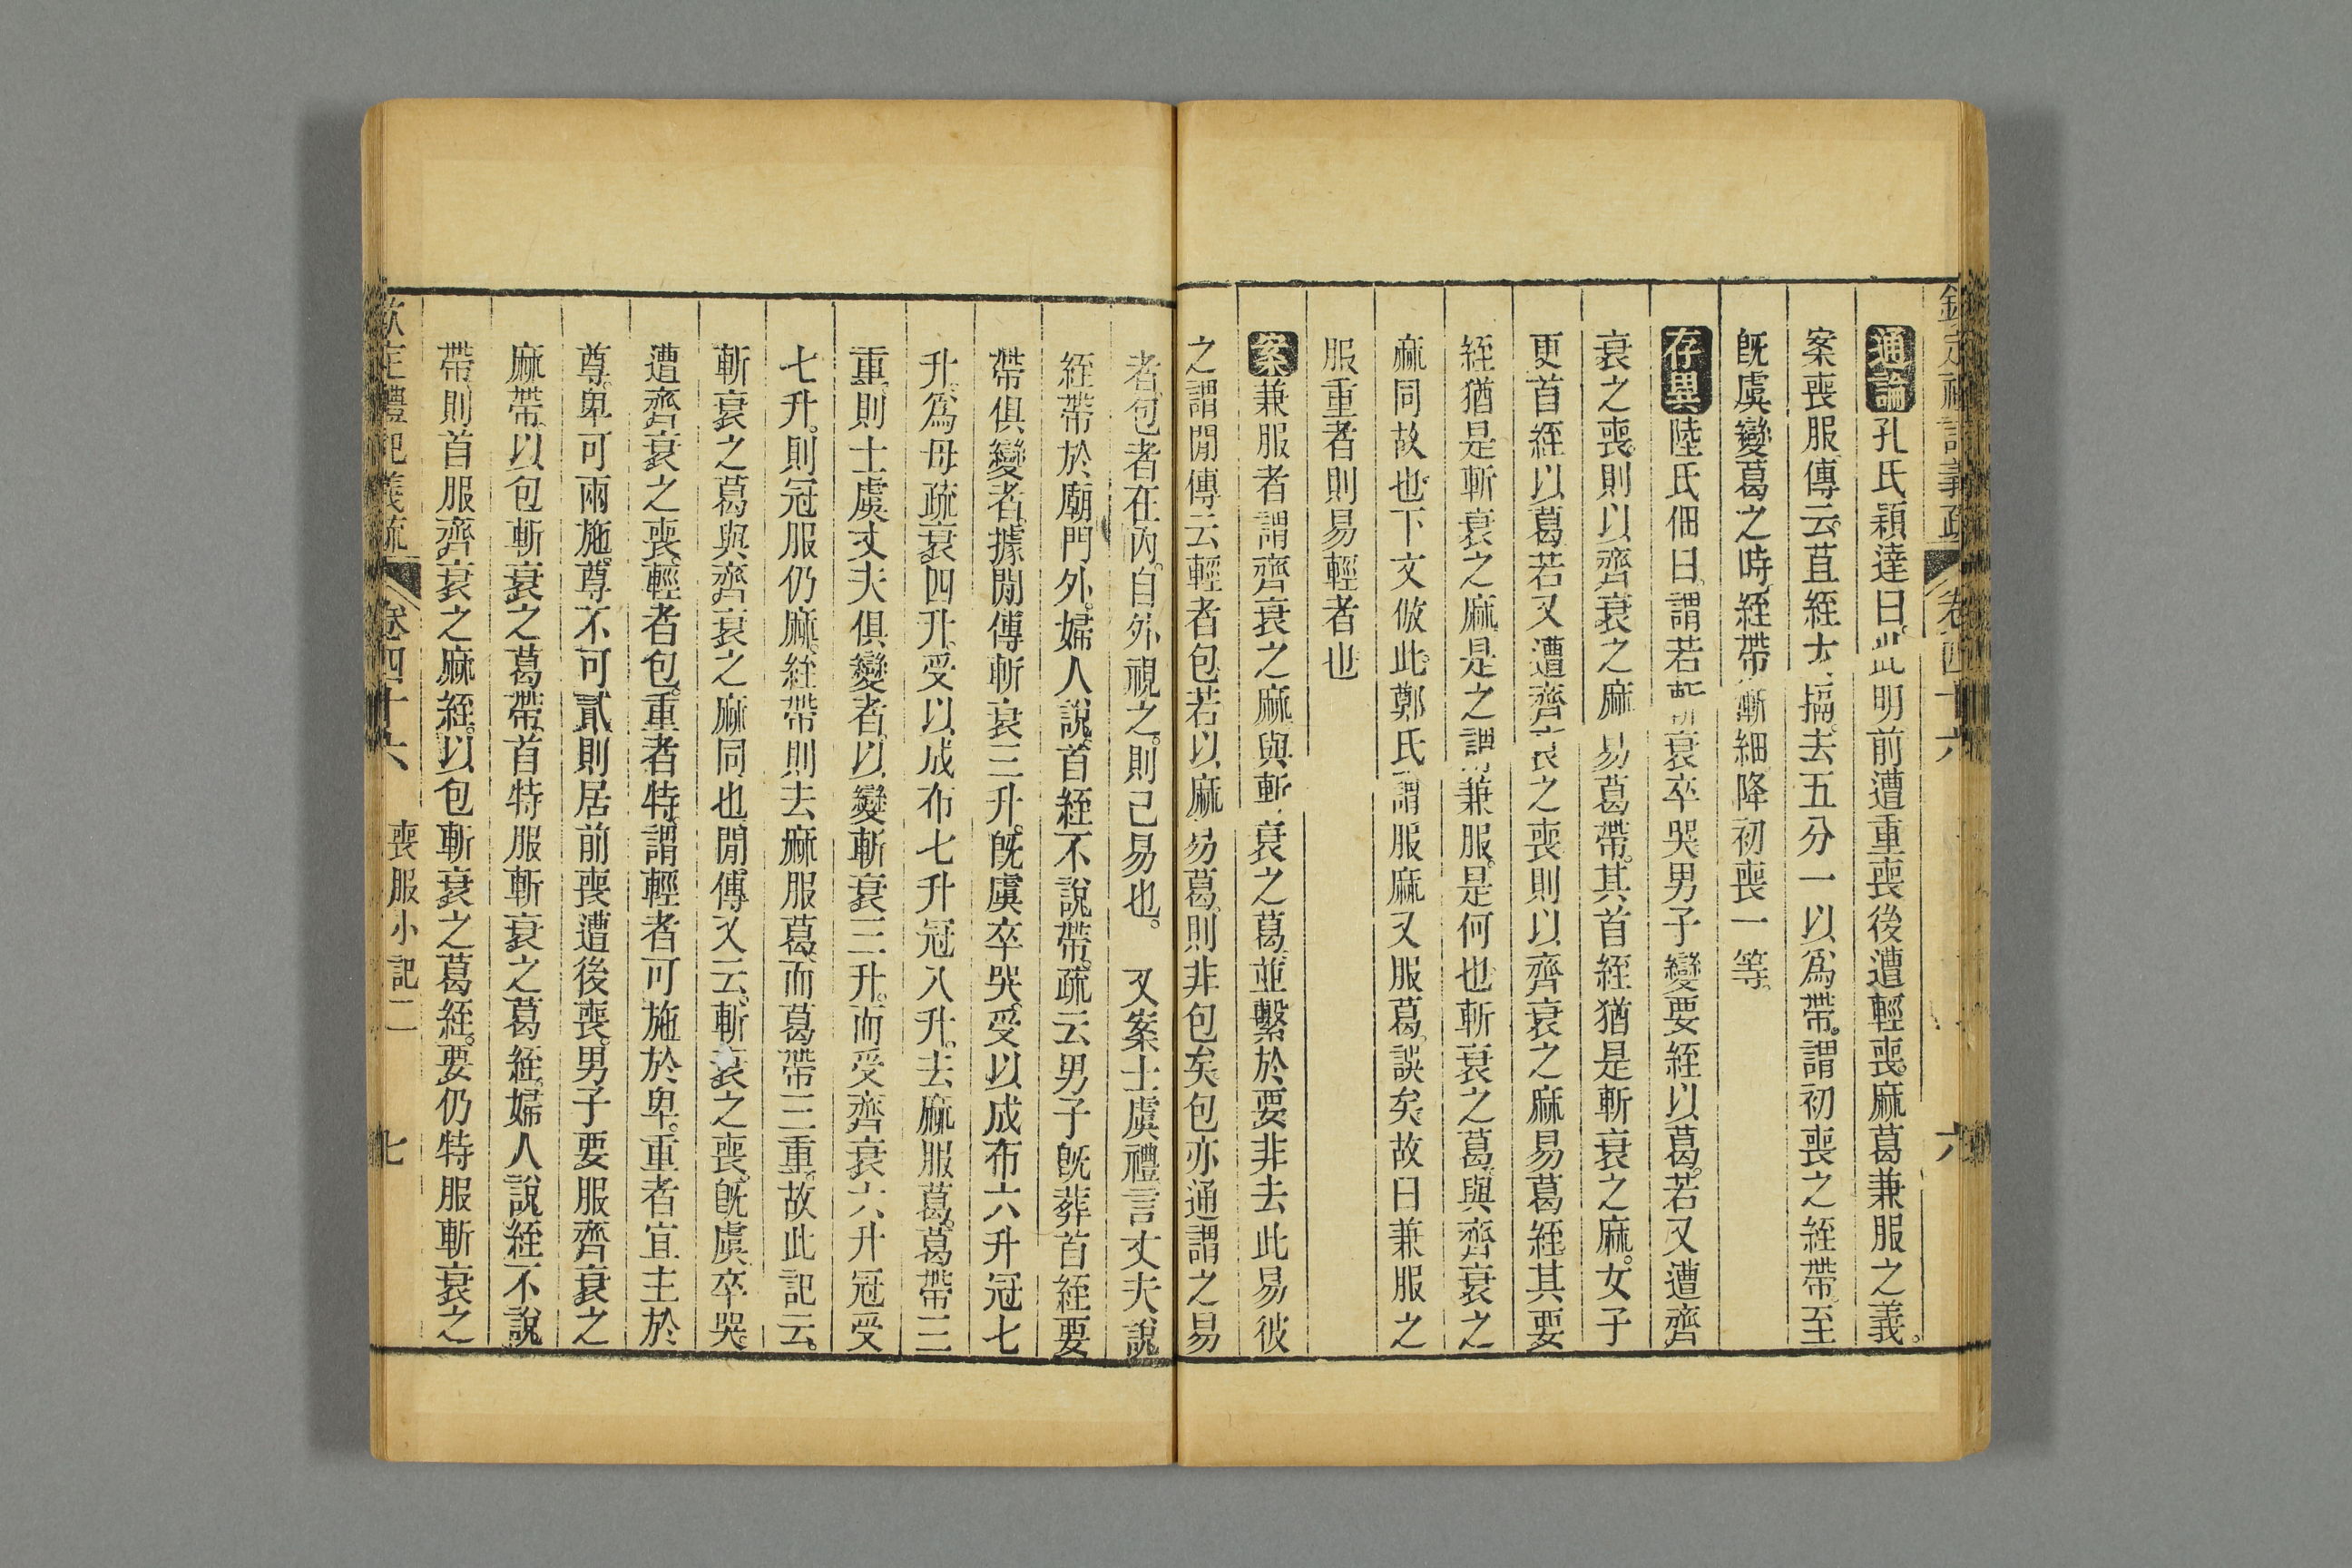 欽定禮記義疏 卷四十六 六
通論孔氏穎達曰此明前遭重喪後遭輕喪麻葛兼服之義
案喪服傳云苴絰大搹去五分一以爲帶謂初喪之絰帶至
旣虞變葛之時絰帶漸細降初喪一等
存異陸氏佃曰謂若斬衰卒哭男子變要絰以葛若又遭齊
衰之喪則以齊衰之麻易葛帶其首絰猶是斬衰之麻女子
更首絰以葛若又遭齊衰之喪則以齊衰之麻易葛絰其要
絰猶是斬衰之麻是之謂兼服是何也斬衰之葛與齊衰之
麻同故也下文倣此鄭氏謂服麻又服葛誤矣故曰兼服之
服重者則易輕者也
案兼服者謂齊衰之麻與斬衰之葛並繫於要非去此易彼
之謂閒傳云輕者包若以麻易葛則非包矣包亦通謂之易
者包者在內自外視之則已易也 又案士虞禮言丈夫說
絰帶於廟門外婦人說首絰不說帶疏云男子旣葬首絰要
帶俱變者據閒傳斬衰三升旣虞卒哭受以成布六升冠七
升爲母疏衰四升受以成布七升冠八升去麻服葛葛帶三
重則士虞丈夫俱變者以變斬衰三升而受齊衰六升冠受
七升則冠服仍麻絰帶則去麻服葛而葛帶三重故此記云
斬衰之葛與齊衰之麻同也閒傳又云斬衰之喪旣虞卒哭
遭齊衰之喪輕者包重者特謂輕者可施於卑重者宜主於
尊卑可兩施尊不可貳則居前喪遭後喪男子要服齊衰之
麻帶以包斬衰之葛帶首特服斬衰之葛絰婦人說絰不說
帶則首服齊衰之麻絰以包斬衰之葛絰要仍特服斬衰之
欽定禮記義疏 卷四十六 喪服小記二 七